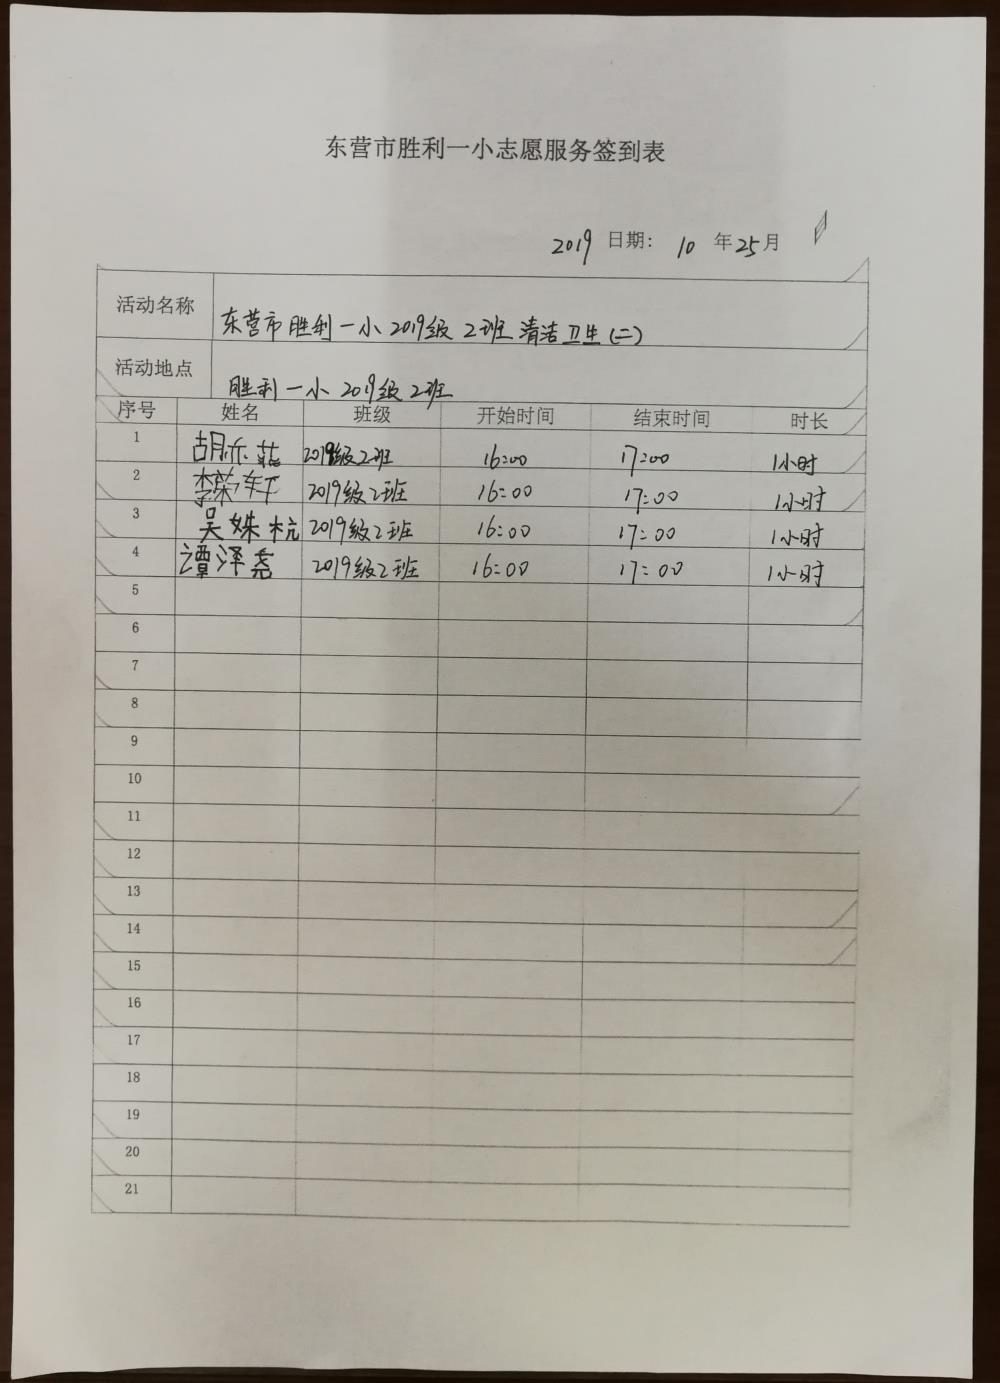 东营市胜利一小志愿服务签到表
2019 日期: 10 年 25 月
活动名称 东营市胜利一小2019级2班清洁卫生(二)
活动地点 胜利一小2019级2班
序号 姓名 班级 开始时间 结束时间 时长
1 胡亦菲 2019级2班 16:00 17:00 1小时
2 李 2019级2班 16:00 17:00 1小时
3 吴姝杭 2019级2班 16:00 17:00 1小时
4 谭泽尧 2019级2班 16:00 17:00 1小时
5
6
7
8
9
10
11
12
13
14
15
16
17
18
19
20
21